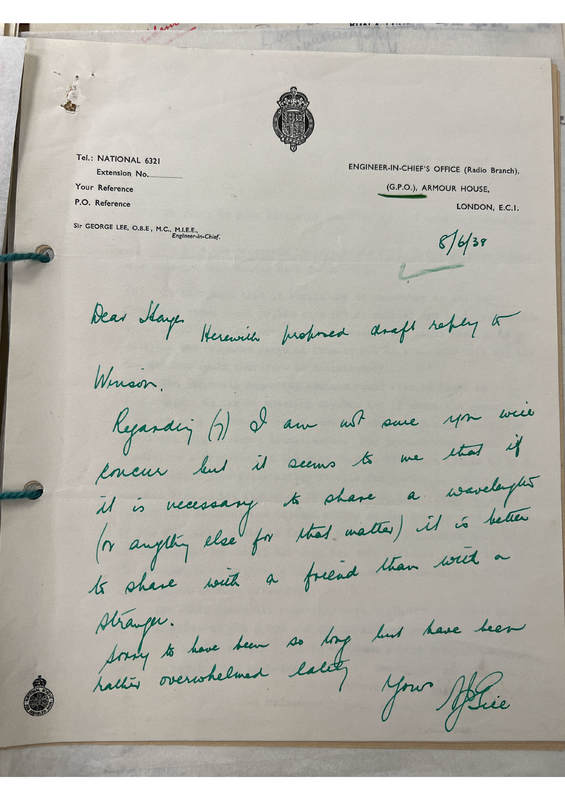 Tel.: NATIONAL 6321
Extension No.
Your Reference
P.O. Reference
Sir GEORGE LEE, O.B.E., M.C., M.I.E.E.,
Engineer-in-Chief.
ENGINEER-IN-CHIEF'S OFFICE (Radio Branch),
(G.P.O.), ARMOUR HOUSE,
LONDON, E.C.1.
8/6/38
Dear Hayes
Herewith proposed draft reply to
Winson.
Regarding (7) I am not sure you will
concur but it seems to me that if
it is necessary to share a wavelength
(or anything else for that matter) it is better
to share with a friend than with a
stranger.
Sorry to have been so long but have been
rather overwhelmed lately
Yours